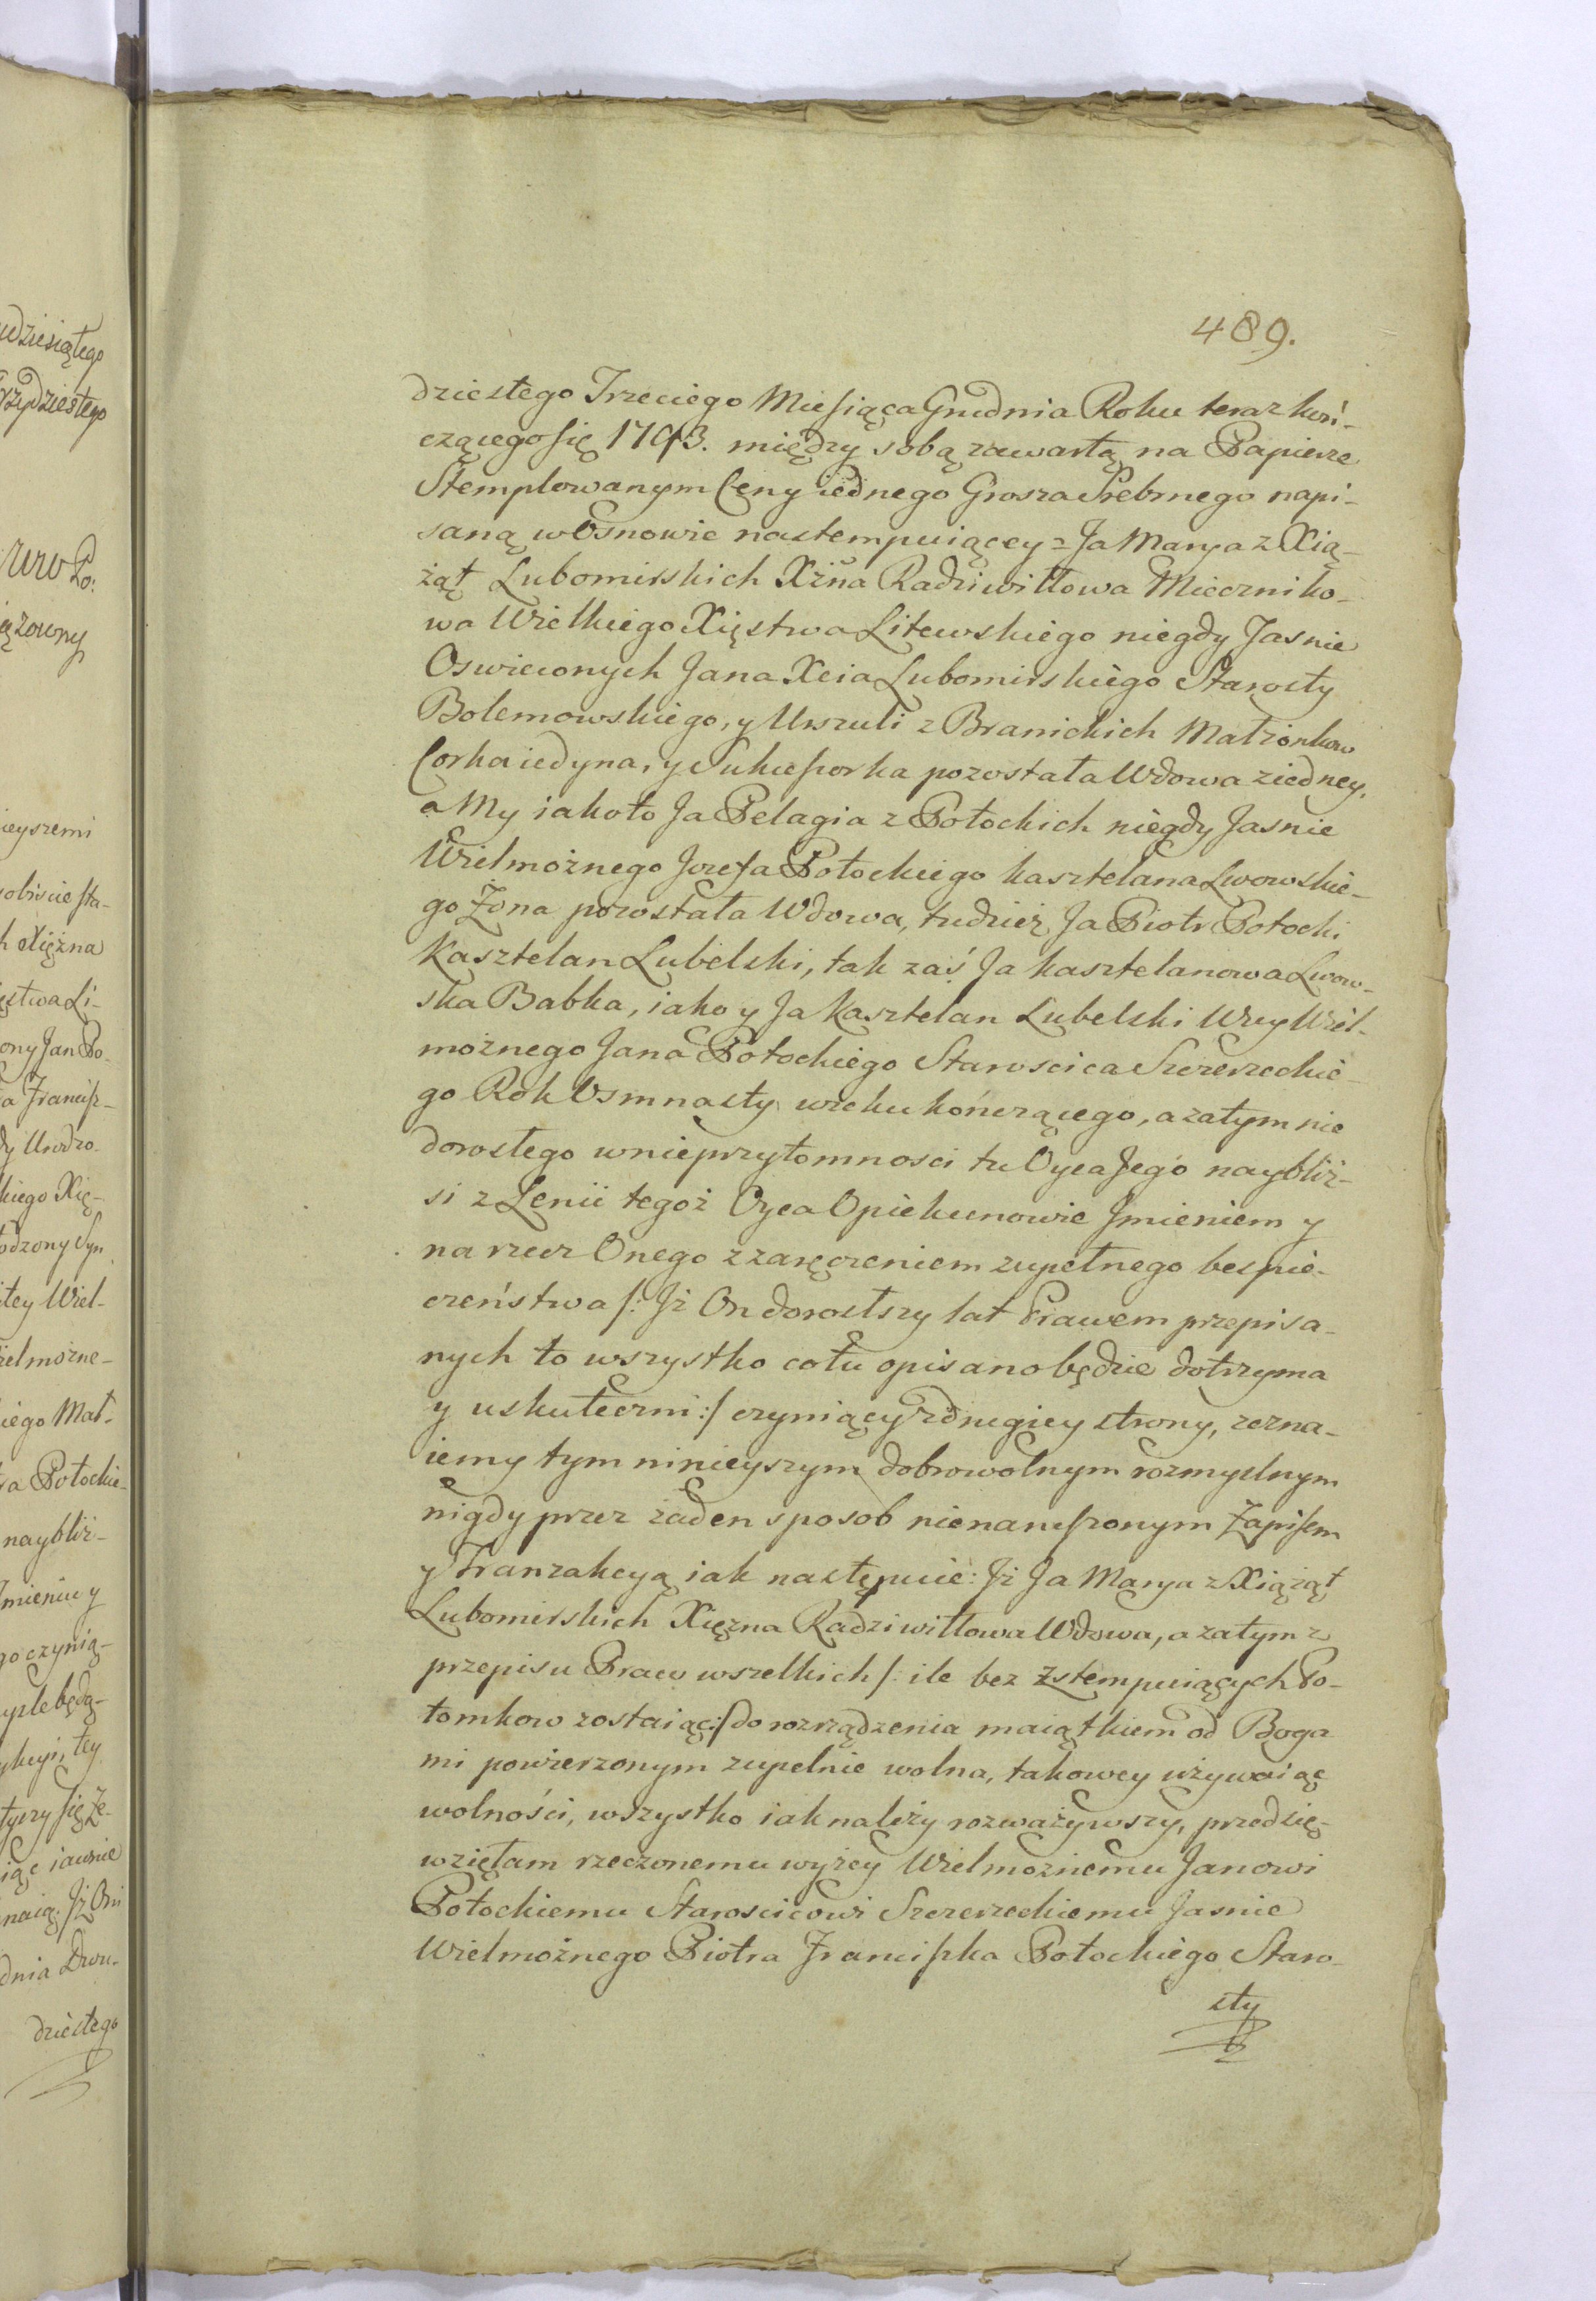 489.
dziestego Trzeciego Miesiąca Grudnia Roku teraz koń-
czącego się 1793. między sobą zawartą na Papierze
Stemplowanym Ceny iednego Grosza Srebrnego napi-
saną w Osnowie nastempuiącey = Ja Marya z Xią-
żąt Lubomirskich Xżna Radziwiłłowa Mieczniko-
wa Wielkiego Xięstwa Litewskiego niegdy Jasnie
Oswieconych Jana Xcia Lubomirskiego Starosty
Bolemowskiego, y Urszuli z Branickich Małżonkow
Corka iedyna, y Sukcesorka pozostała Wdowa z iedney,
a My iakoto Ja Pelagia z Potockich niegdy Jasnie
Wielmożnego Jozefa Potockiego kasztelana Lwowskie-
go Żona pozostała Wdowa, tudzież Ja Piotr Potocki
Kasztelan Lubelski, tak zaś Ja kasztelanowa Lwow-
ska Babka, iako y Ja Kasztelan Lubelski Wuy Wiel-
możnego Jana Potockiego Staroscica Szczerzeckie-
go Rok Osmnasty wieku kończącego, a zatym nie
dorosłego w nieprzytomnosci tu Oyca Jego naybliż-
si z Lenii tegoż Oyca Opiekunowie Jmieniem y
na rzecz Onego z zaręczeniem zupełnego bespie-
czeństwa /: Jż On doroszłszy lat Prawem przepisa-
nych to wszystko co tu opisano będzie dotrzyma
y uskuteczni :/ czyniący z drugiey strony, zezna-
iemy tym ninieyszym dobrowolnym rozmyslnym
nigdy przez żaden sposob nienaruszonym Zapisem
y Tranzakcyą iak następuie: Jż Ja Marya z Xiążąt
Lubomirskich Xiężna Radziwiłłowa Wdowa, a zatym z
przepisu Praw wszelkich /: ile bez Zstempuiących Po-
tomkow zostaiąc :/ do rozrządzenia maiątkiem od Boga
mi powierzonym zupełnie wolna, takowey używaiąc
wolności, wszystko iak należy rozważywszy, przedsię-
wzięłam rzeczonemu wyżey Wielmożnemu Janowi
Potockiemu Staroscicowi Szczerzeckiemu Jasnie
Wielmożnego Piotra Franciszka Potockiego Staro-
sty